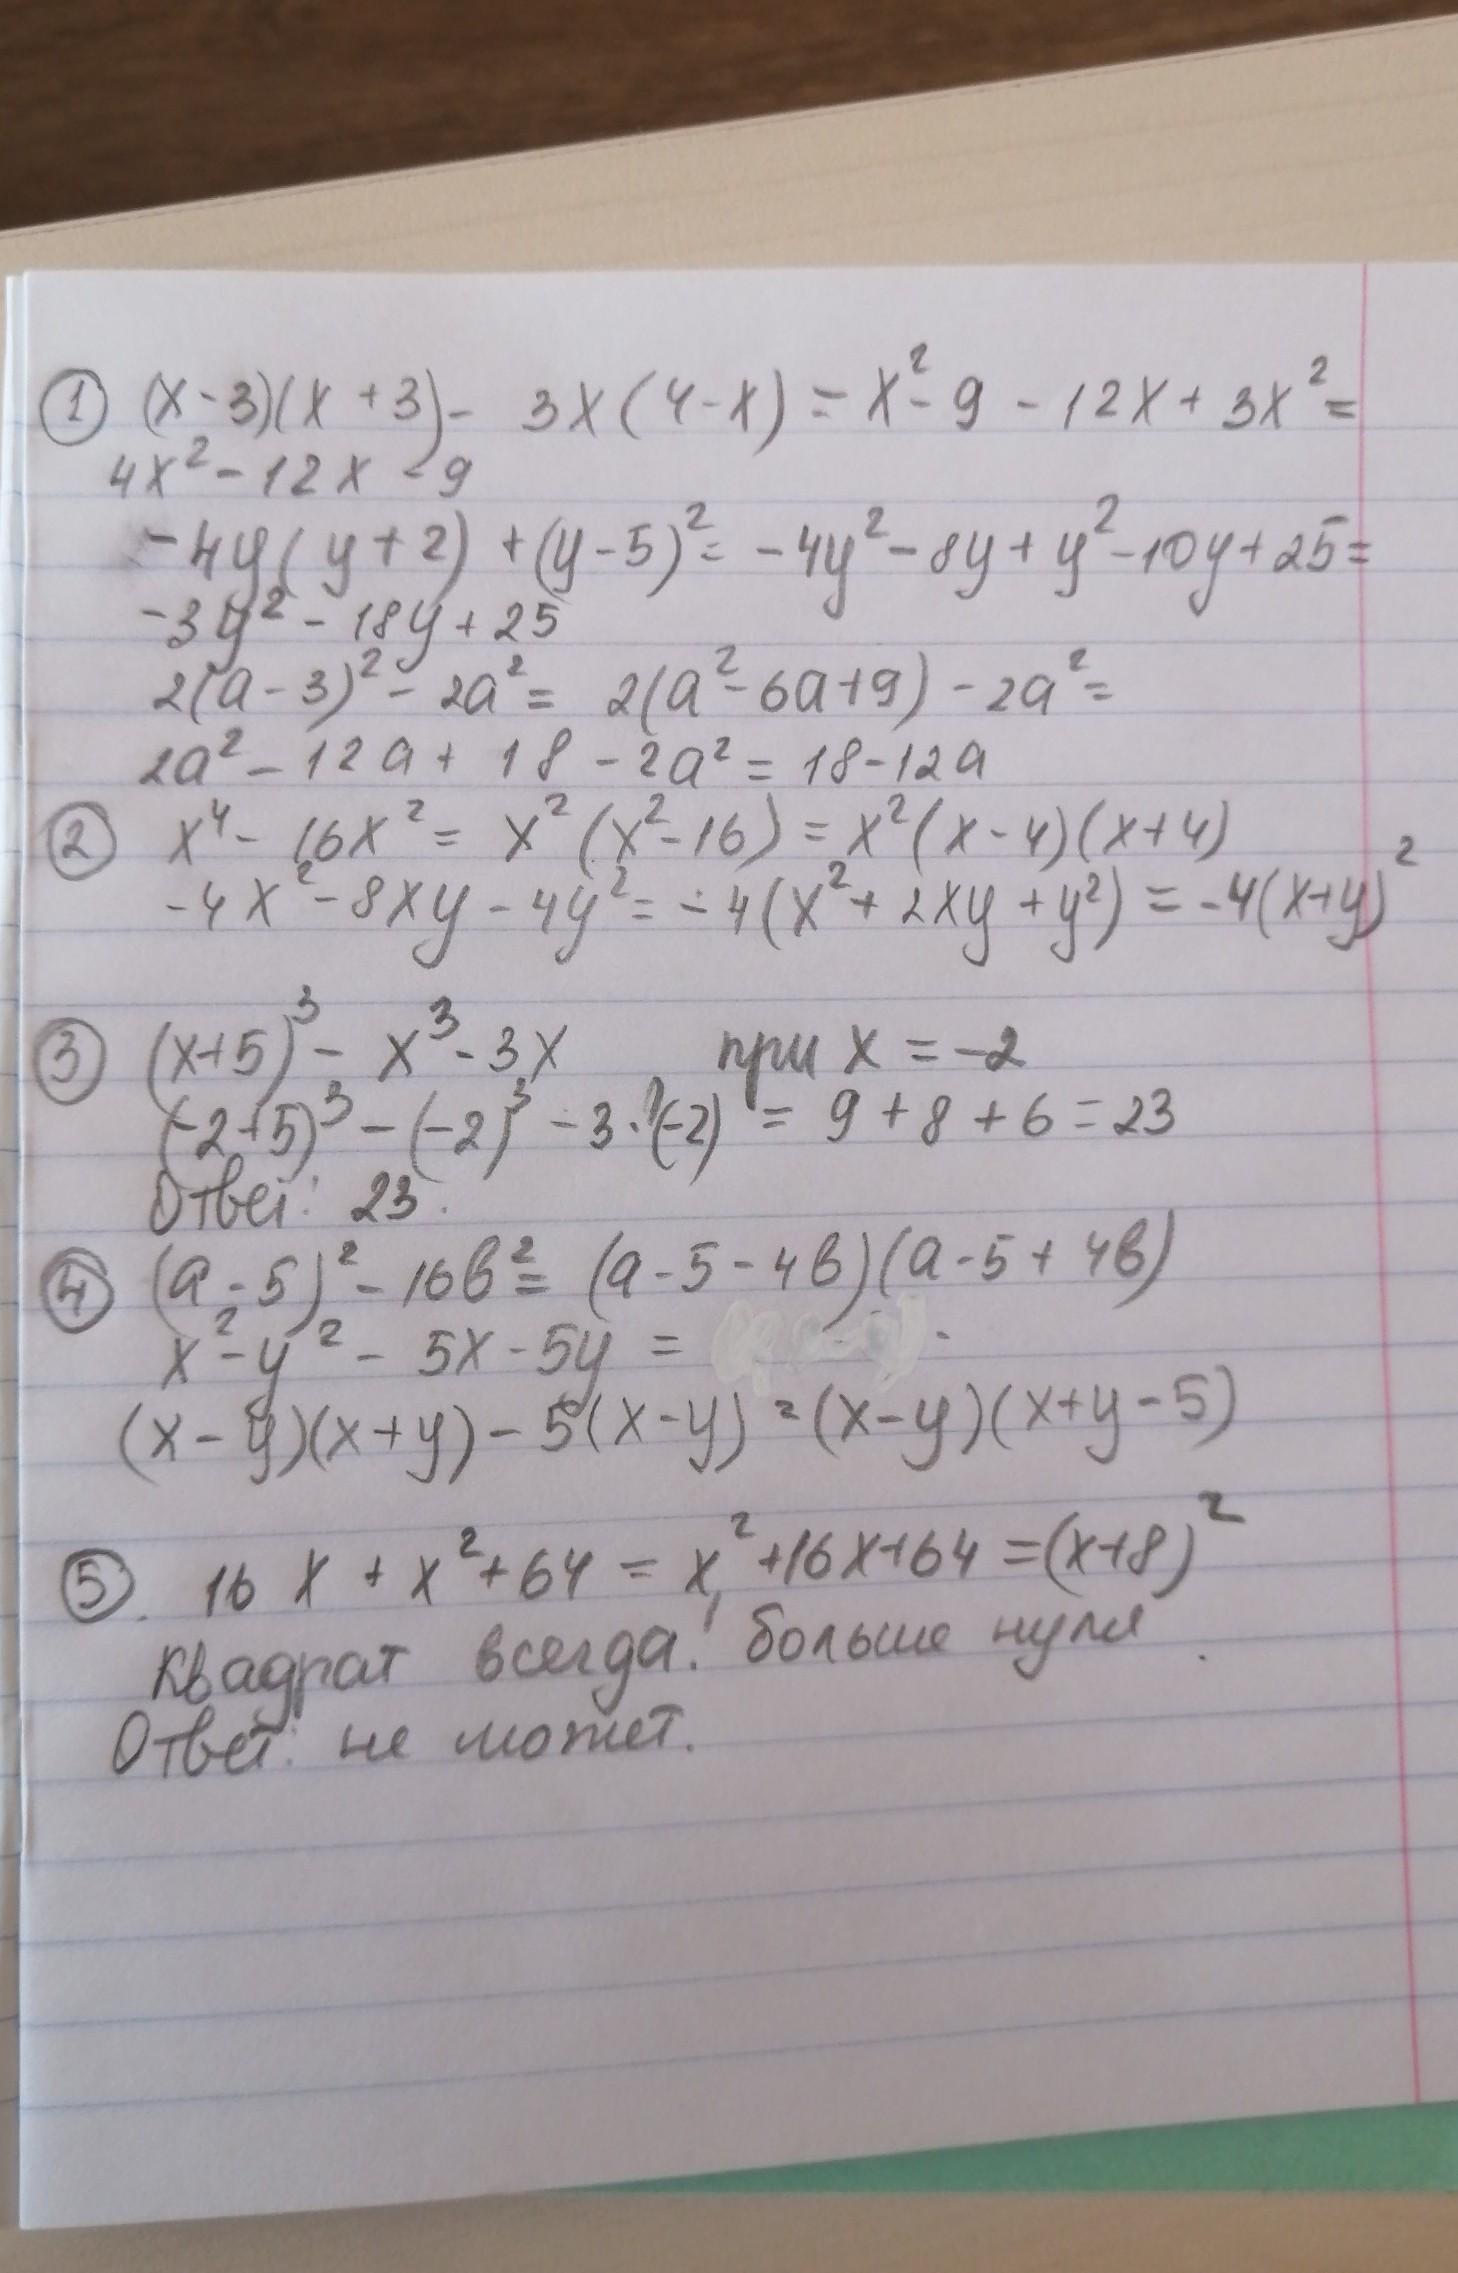 ① (x-3)(x+3)- 3x(4-x)=x²-9-12x+3x²=
4x²-12x-9
-4y(y+2)+(y-5)²=-4y²-8y+y²-10y+25=
-3y²-18y+25
2(a-3)²-2a²= 2(a²-6a+9)-2a²=
2a²-12a+18-2a²=18-12a
② x⁴-16x²=x²(x²-16)=x²(x-4)(x+4)
-4x²-8xy-4y²=-4(x²+2xy+y²)=-4(x+y)²
③ (x+5)³-x³-3x при x=-2
(-2+5)³-(-2)³-3·(-2)=9+8+6=23
Ответ: 23.
④ (a-5)²-16в²=(a-5-4в)(a-5+4в)
x²-y²-5x-5y=
(x-y)(x+y)-5(x-y)=(x-y)(x+y-5)
⑤. 16x+x²+64=x²+16x+64=(x+8)²
Квадрат всегда! больше нуля.
Ответ: не может.